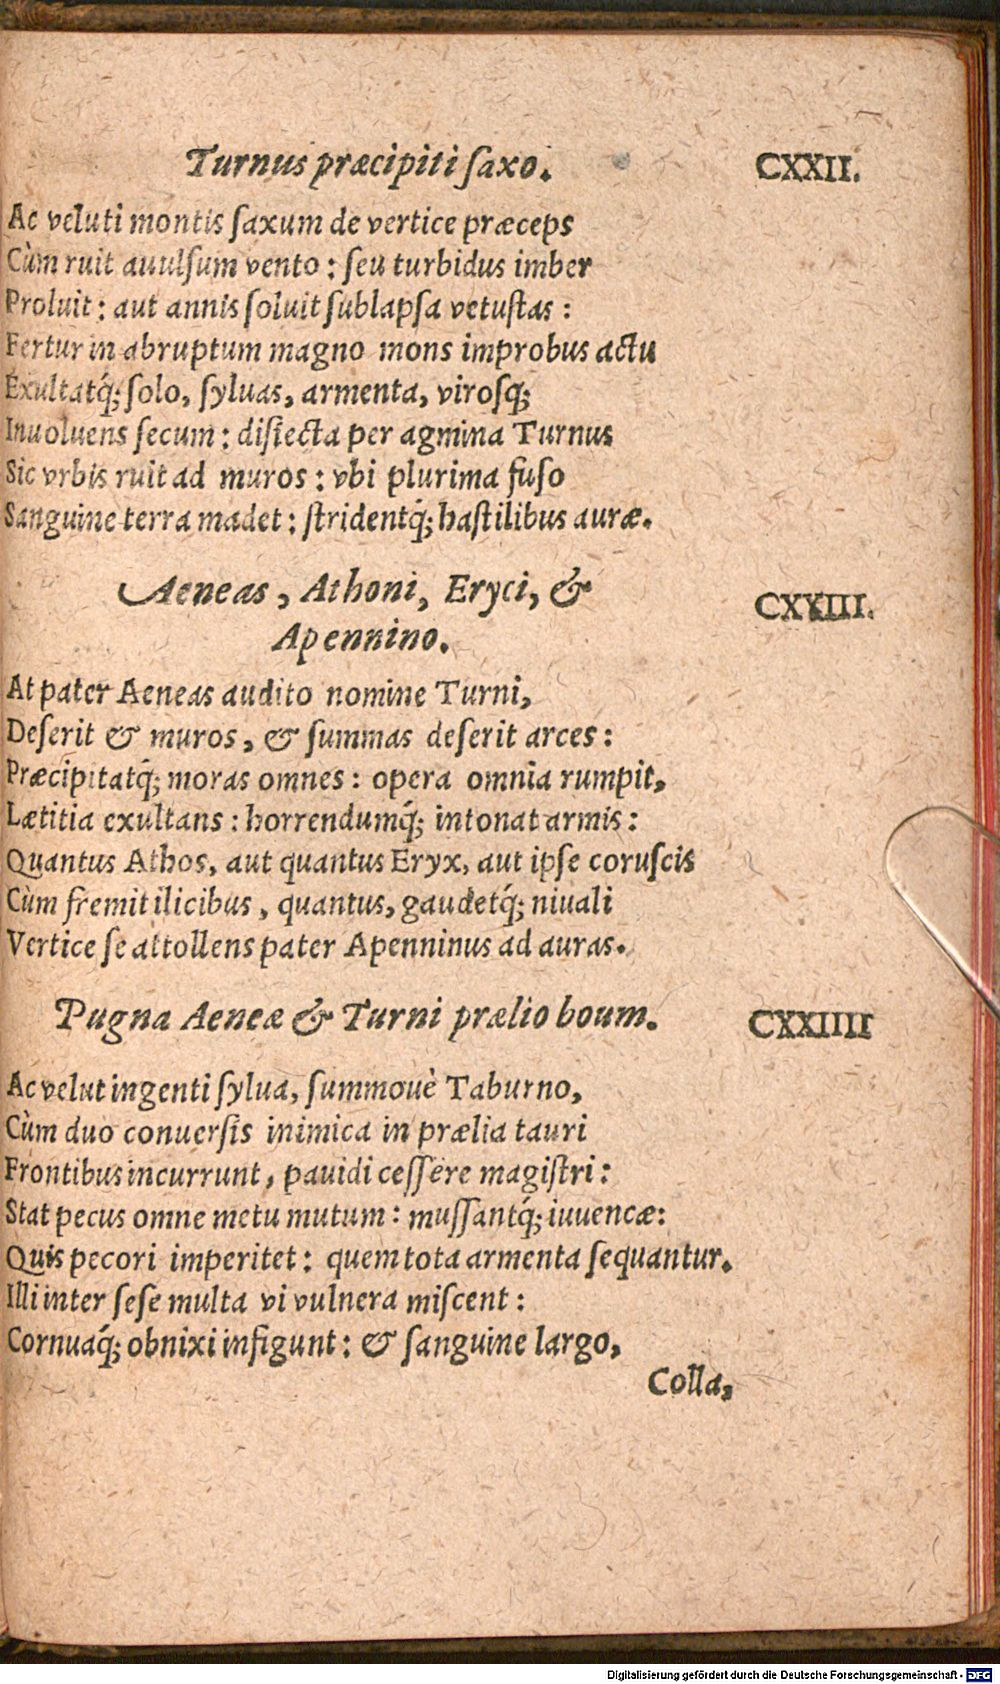 Turnus præcipiti ſaxo. CXXII.
Ac veluti montis ſaxum de vertice præceps
Cùm ruit auulſum vento : ſeu turbidus imber
Proluit : aut annis ſoluit ſublapſa vetuſtas :
Fertur in abruptum magno mons improbus actu
Exultatq́; ſolo, ſyluas, armenta, viroſq;
Inuoluens ſecum : diſiecta per agmina Turnus
Sic vrbis ruit ad muros : vbi plurima fuſo
Sanguine terra madet : ſtridentq́; haſtilibus auræ.
Aeneas, Athoni, Eryci, &
Apennino. CXXIII.
At pater Aeneas audito nomine Turni,
Deſerit & muros, & ſummas deſerit arces :
Præcipitatq́; moras omnes : opera omnia rumpit,
Lætitia exultans : horrendumq́; intonat armis :
Quantus Athos, aut quantus Eryx, aut ipſe coruſcis
Cùm fremit ilicibus, quantus, gaudetq́; niuali
Vertice ſe attollens pater Apenninus ad auras.
Pugna Aeneæ & Turni prælio boum. CXXIIII
Ac velut ingenti ſylua, ſummouè Taburno,
Cùm duo conuerſis inimica in prælia tauri
Frontibus incurrunt, pauidi ceſſere magiſtri :
Stat pecus omne metu mutum : muſſantq́; iuuencæ:
Quis pecori imperitet : quem tota armenta ſequantur.
Illi inter ſeſe multa vi vulnera miſcent :
Cornuaq́; obnixi infigunt : & ſanguine largo,
Colla,
Digitalisierung gefördert durch die Deutsche Forschungsgemeinschaft - DFG